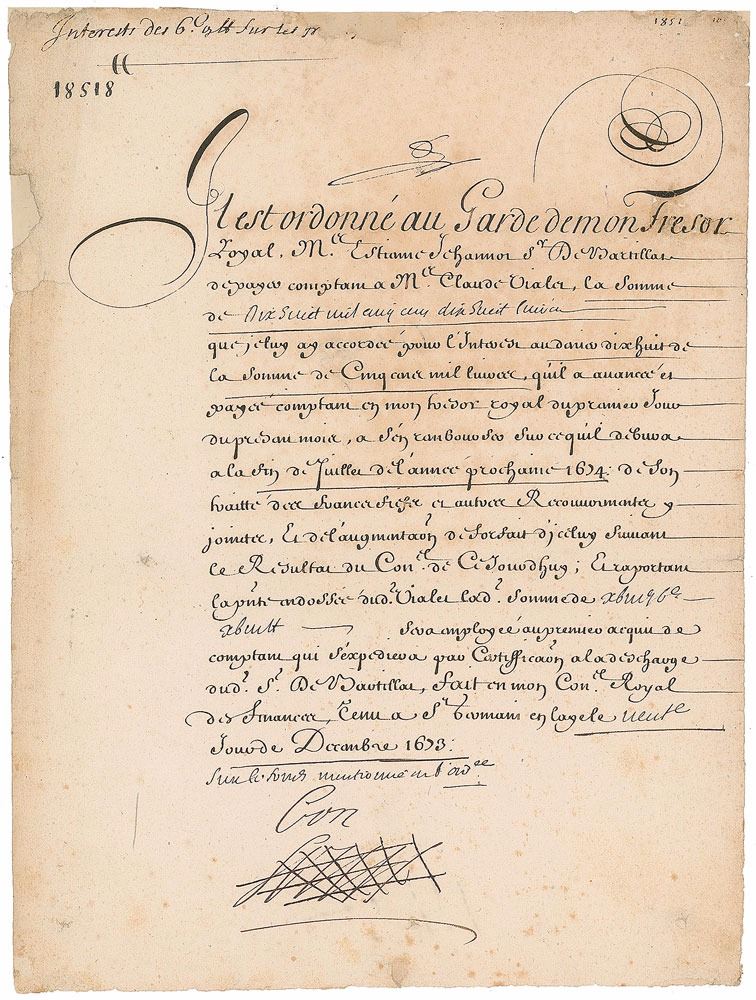 Interests des 6.c lt sur les fr
1851
18518
Il est ordonné au Garde de mon Tresor
Royal, M.e Estienne Jehannot S.r De Bartillat
de payer comptant a M.e Claude Vialet, la somme
de Dix huict mil cinq cens dix huict livres
que je luy ay accordée pour l'Interest au denier dix huit de
la somme de Cinq cens mil livres, qu'il a avancée et
payée comptant en mon tresor royal du premier Jour
du presan mois, a s'en rambourser sur ce qu'il debvra
a la fin de Juillet de l'année prochaine 1674. de son
traitté des francs fiefs et autres Recouvrements y
jointes, Et de l'augmentaõn de forfait d'iceluy suivant
le Resultat du Con.el de Ce Jourdhuy; Et raportant
la pñte endossée dud. Vialet lad. somme de xbiiij m b c
xbiij lt sera employée au premier acquit de
comptant qui s'expediera par Certifficaõn a la descharge
dud. S.r De Bartillat, fait en mon Con.el Royal
des finances, Tenu a S.t Germain en Laye le trente
Jour de Decembre 1673.
Sur le fonds mentionné en l'ord.ce
Bon